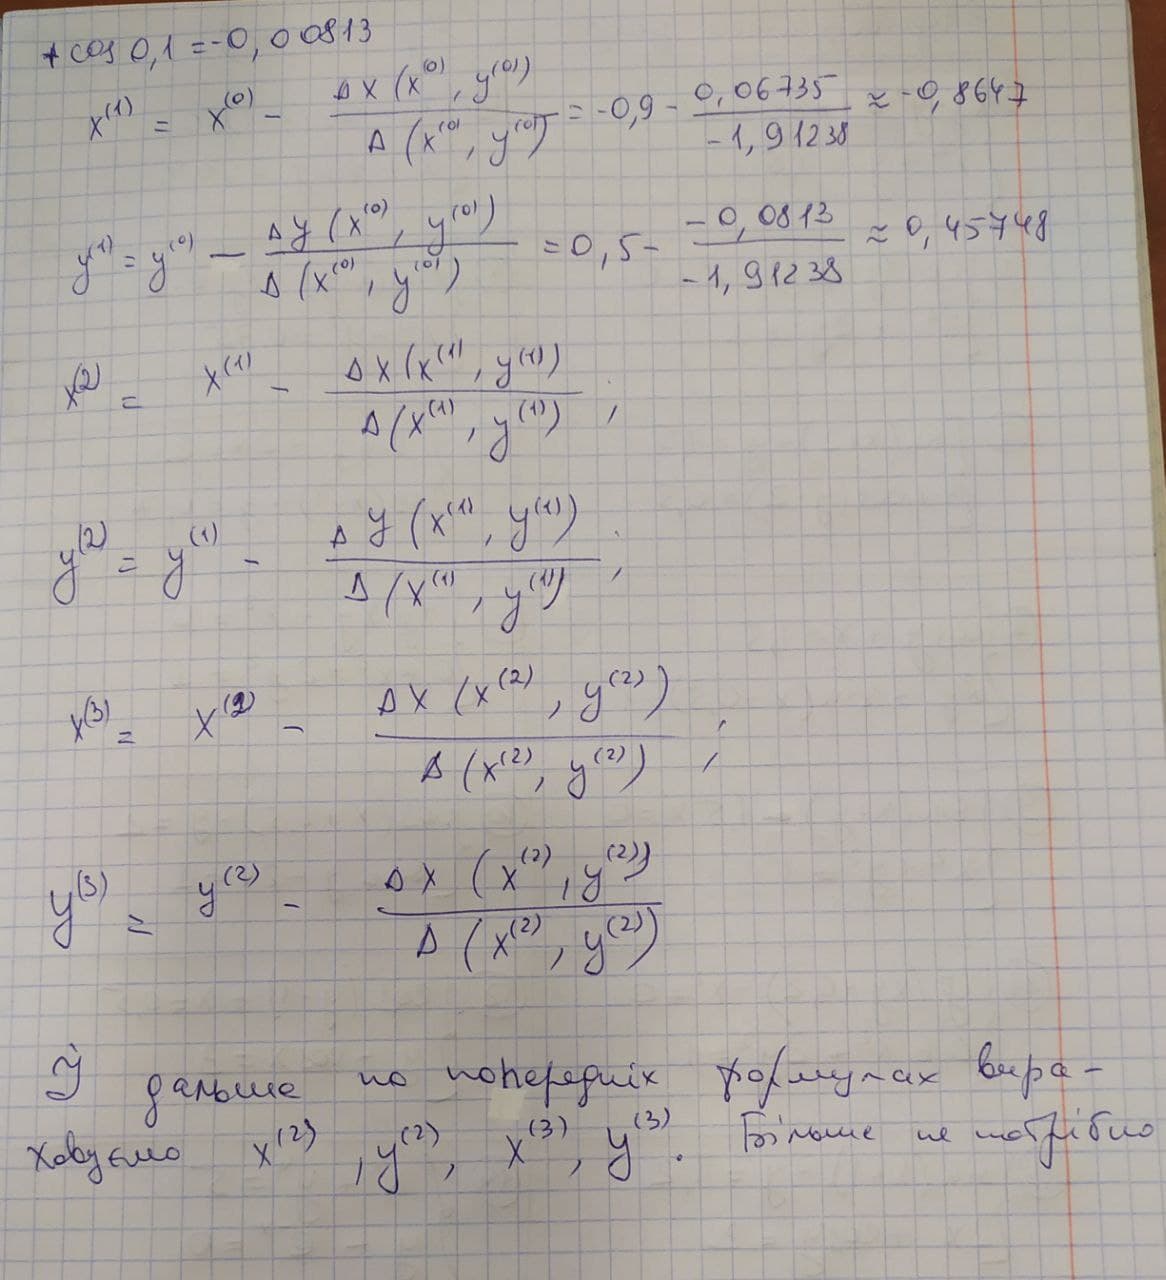 + cos 0,1 = -0,00813
x⁽¹⁾ = x⁽⁰⁾ - Δx(x⁽⁰⁾, y⁽⁰⁾) / Δ(x⁽⁰⁾, y⁽⁰⁾) = -0,9 - 0,06735 / -1,91238 ≈ -0,8647
y⁽¹⁾ = y⁽⁰⁾ - Δy(x⁽⁰⁾, y⁽⁰⁾) / Δ(x⁽⁰⁾, y⁽⁰⁾) = 0,5 - -0,0813 / -1,91238 ≈ 0,45748
x⁽²⁾ = x⁽¹⁾ - Δx(x⁽¹⁾, y⁽¹⁾) / Δ(x⁽¹⁾, y⁽¹⁾) ;
y⁽²⁾ = y⁽¹⁾ - Δy(x⁽¹⁾, y⁽¹⁾) / Δ(x⁽¹⁾, y⁽¹⁾) ;
x⁽³⁾ = x⁽²⁾ - Δx(x⁽²⁾, y⁽²⁾) / Δ(x⁽²⁾, y⁽²⁾) ;
y⁽³⁾ = y⁽²⁾ - Δx(x⁽²⁾, y⁽²⁾) / Δ(x⁽²⁾, y⁽²⁾)
Й дальше по попередніх формулах вира-
ховуємо x⁽²⁾, y⁽²⁾, x⁽³⁾, y⁽³⁾. Більше не потрібно